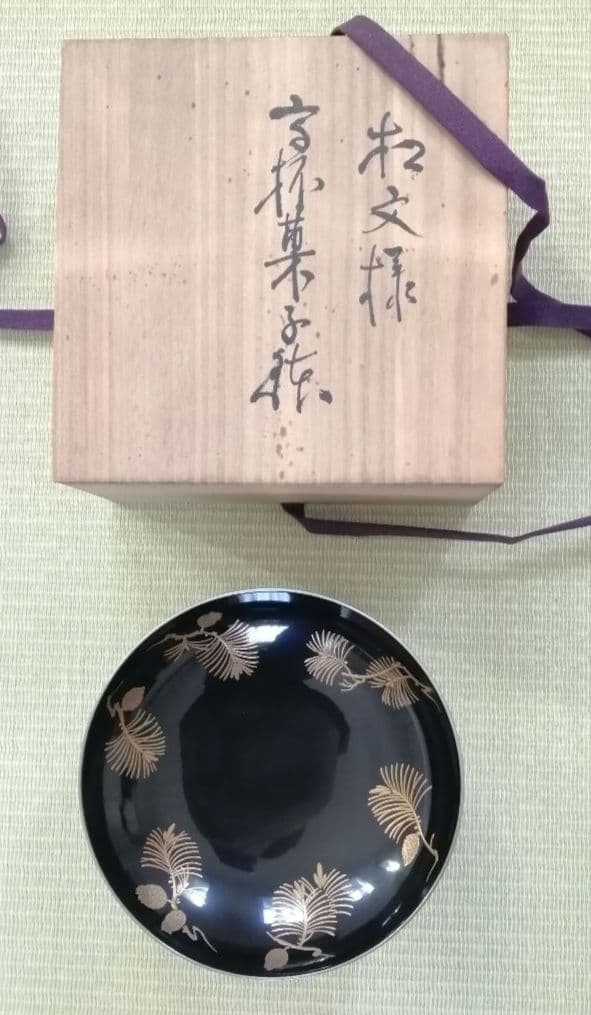 松文様
高杯菓子鉢